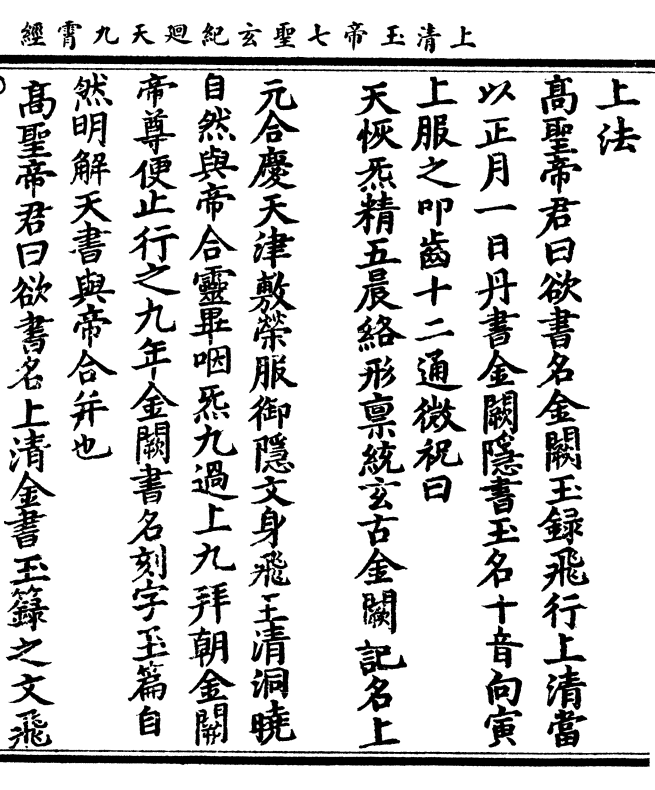 上清玉帝七聖玄紀廻天九霄經
上法
髙聖帝君曰欲書名金闕玉録飛行上清當
以正月一日丹書金闕隱書玉名十音向寅
上服之叩齒十二通微祝曰
天恢炁精五晨絡形禀統玄古金闕記名上
元合慶天津敷榮服御隱文身飛玉清洞曉
自然與帝合靈畢咽炁九過上九拜朝金闕
帝尊便止行之九年金闕書名刻字玉篇自
然明解天書與帝合并也
髙聖帝君曰欲書名上清金書玉籙之文飛